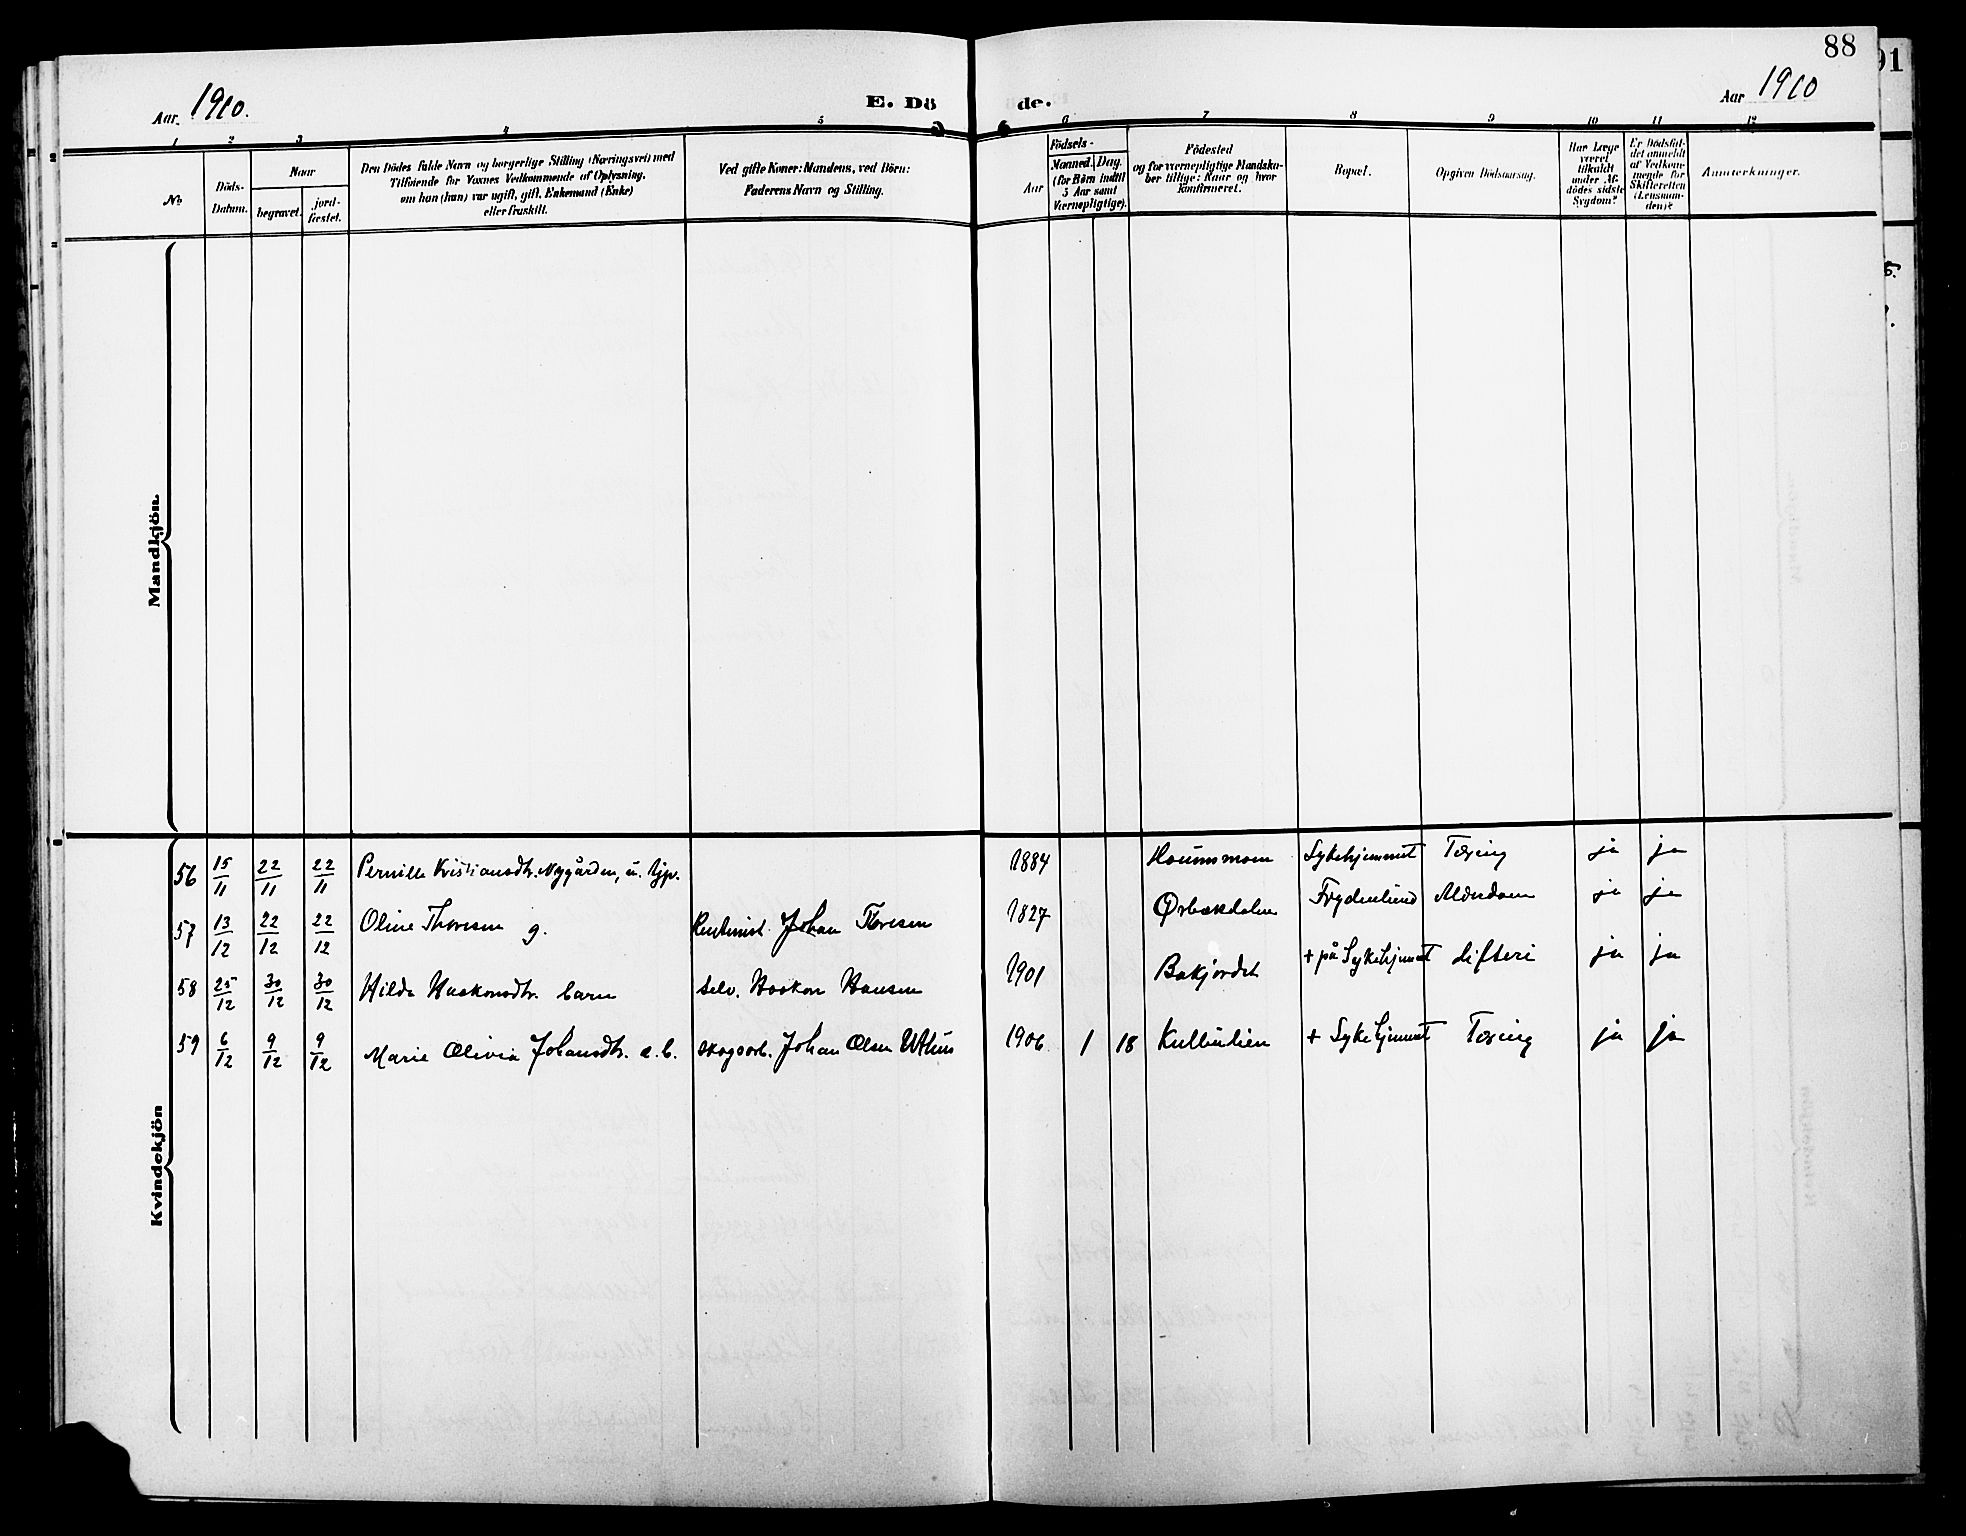 88
91
Aar 1910.
E. Dö de.
Aar 1910
1 2 3 4 5 6 7 8 9 10 11 12
No
Döds-Datum.
Naar
begravet.
jord-fæstet.
Den Dödes fulde Navn og borgerlige Stilling (Næringsvei) med
Tilföiende for Voxnes Vedkommende af Oplysning,
om han (hun) var ugift, gift, Enkemand (Enke)
eller fraskilt.
Ved gifte Koner: Mandens, ved Börn:
Faderens Navn og Stilling.
Födsels-
Aar
Maaned. Dag.
(for Börn indtil
5 Aar samt
Værnepligtige).
Födested
og for værnepligtige Mandska-
ber tillige: Naar og hvor
konfirmeret.
Bopæl.
Opgiven Dödsaarsag.
Har Læge
været
tilkaldt
under Af-
dödes sidste
Sygdom?
Er Dödsfal-
det anmeldt
af Vedkom-
mende for
Skifteretten
(Lensman-
den)?
Anmerkninger.
Mandkjön.
Kvindekjön
56 15/11 22/11 22/11 Pernille Kristiansdtr. Nygården, u. 1884 Sykehjemmet Tæring ja ja
57 13/12 22/12 22/12 Oline Thoresen g. Rentenist. Johan Toresen 1827 Ørbækdalen Frydenlund Alderdom ja ja
58 25/12 30/12 30/12 Hilda Haakonsdtr. barn selv. Haakon Hansen 1901 Bakjordet + på Sykehjemmet difteri ja ja
59 6/12 9/12 9/12 Marie Olivia Johansdtr. e. b. skogsarb. Johan Olsen 1906 1 18 + Sykehjemmet Tæring ja ja